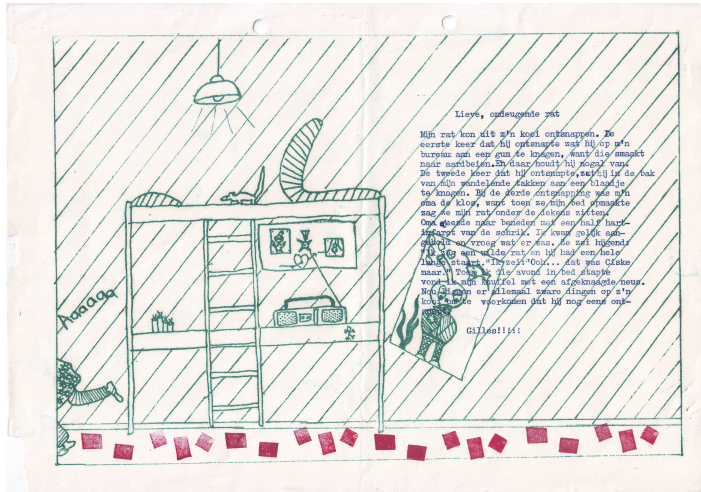 Lieve, ondeugende rat
Mijn rat kon uit z'n kooi ontsnappen. De
eerste keer dat hij ontsnapte zat hij op m'n
bureau aan een gum te knagen, want die smaakt
naar aardbeien.En daar houdt hij nogal van.
De tweede keer dat hij ontsnapte,zat hij in de bak
van mijn wandelende takken aan een blaadje
te knagen. Bij de derde ontsnapping was m'n
oma de klos, want toen ze mijn bed opmaakte
zag ze mijn rat onder de dekens zitten.
Oma naar beneden met een half hart-
infarct van de schrik. Ik kwam gelijk aan-
en vroeg wat er was. Ze zei hijgend:
een wilde rat en hij had een hele
lange staart."Ik zei:"Ooh... dat was Ciske
maar." Toen die avond in bed stapte
vond ik mijn knuffel met een afgeknaagde neus.
Nou er allemaal zware dingen op z'n
kooi te voorkomen dat hij nog eens ont-
Gilles!!!!!
Aaaaaa